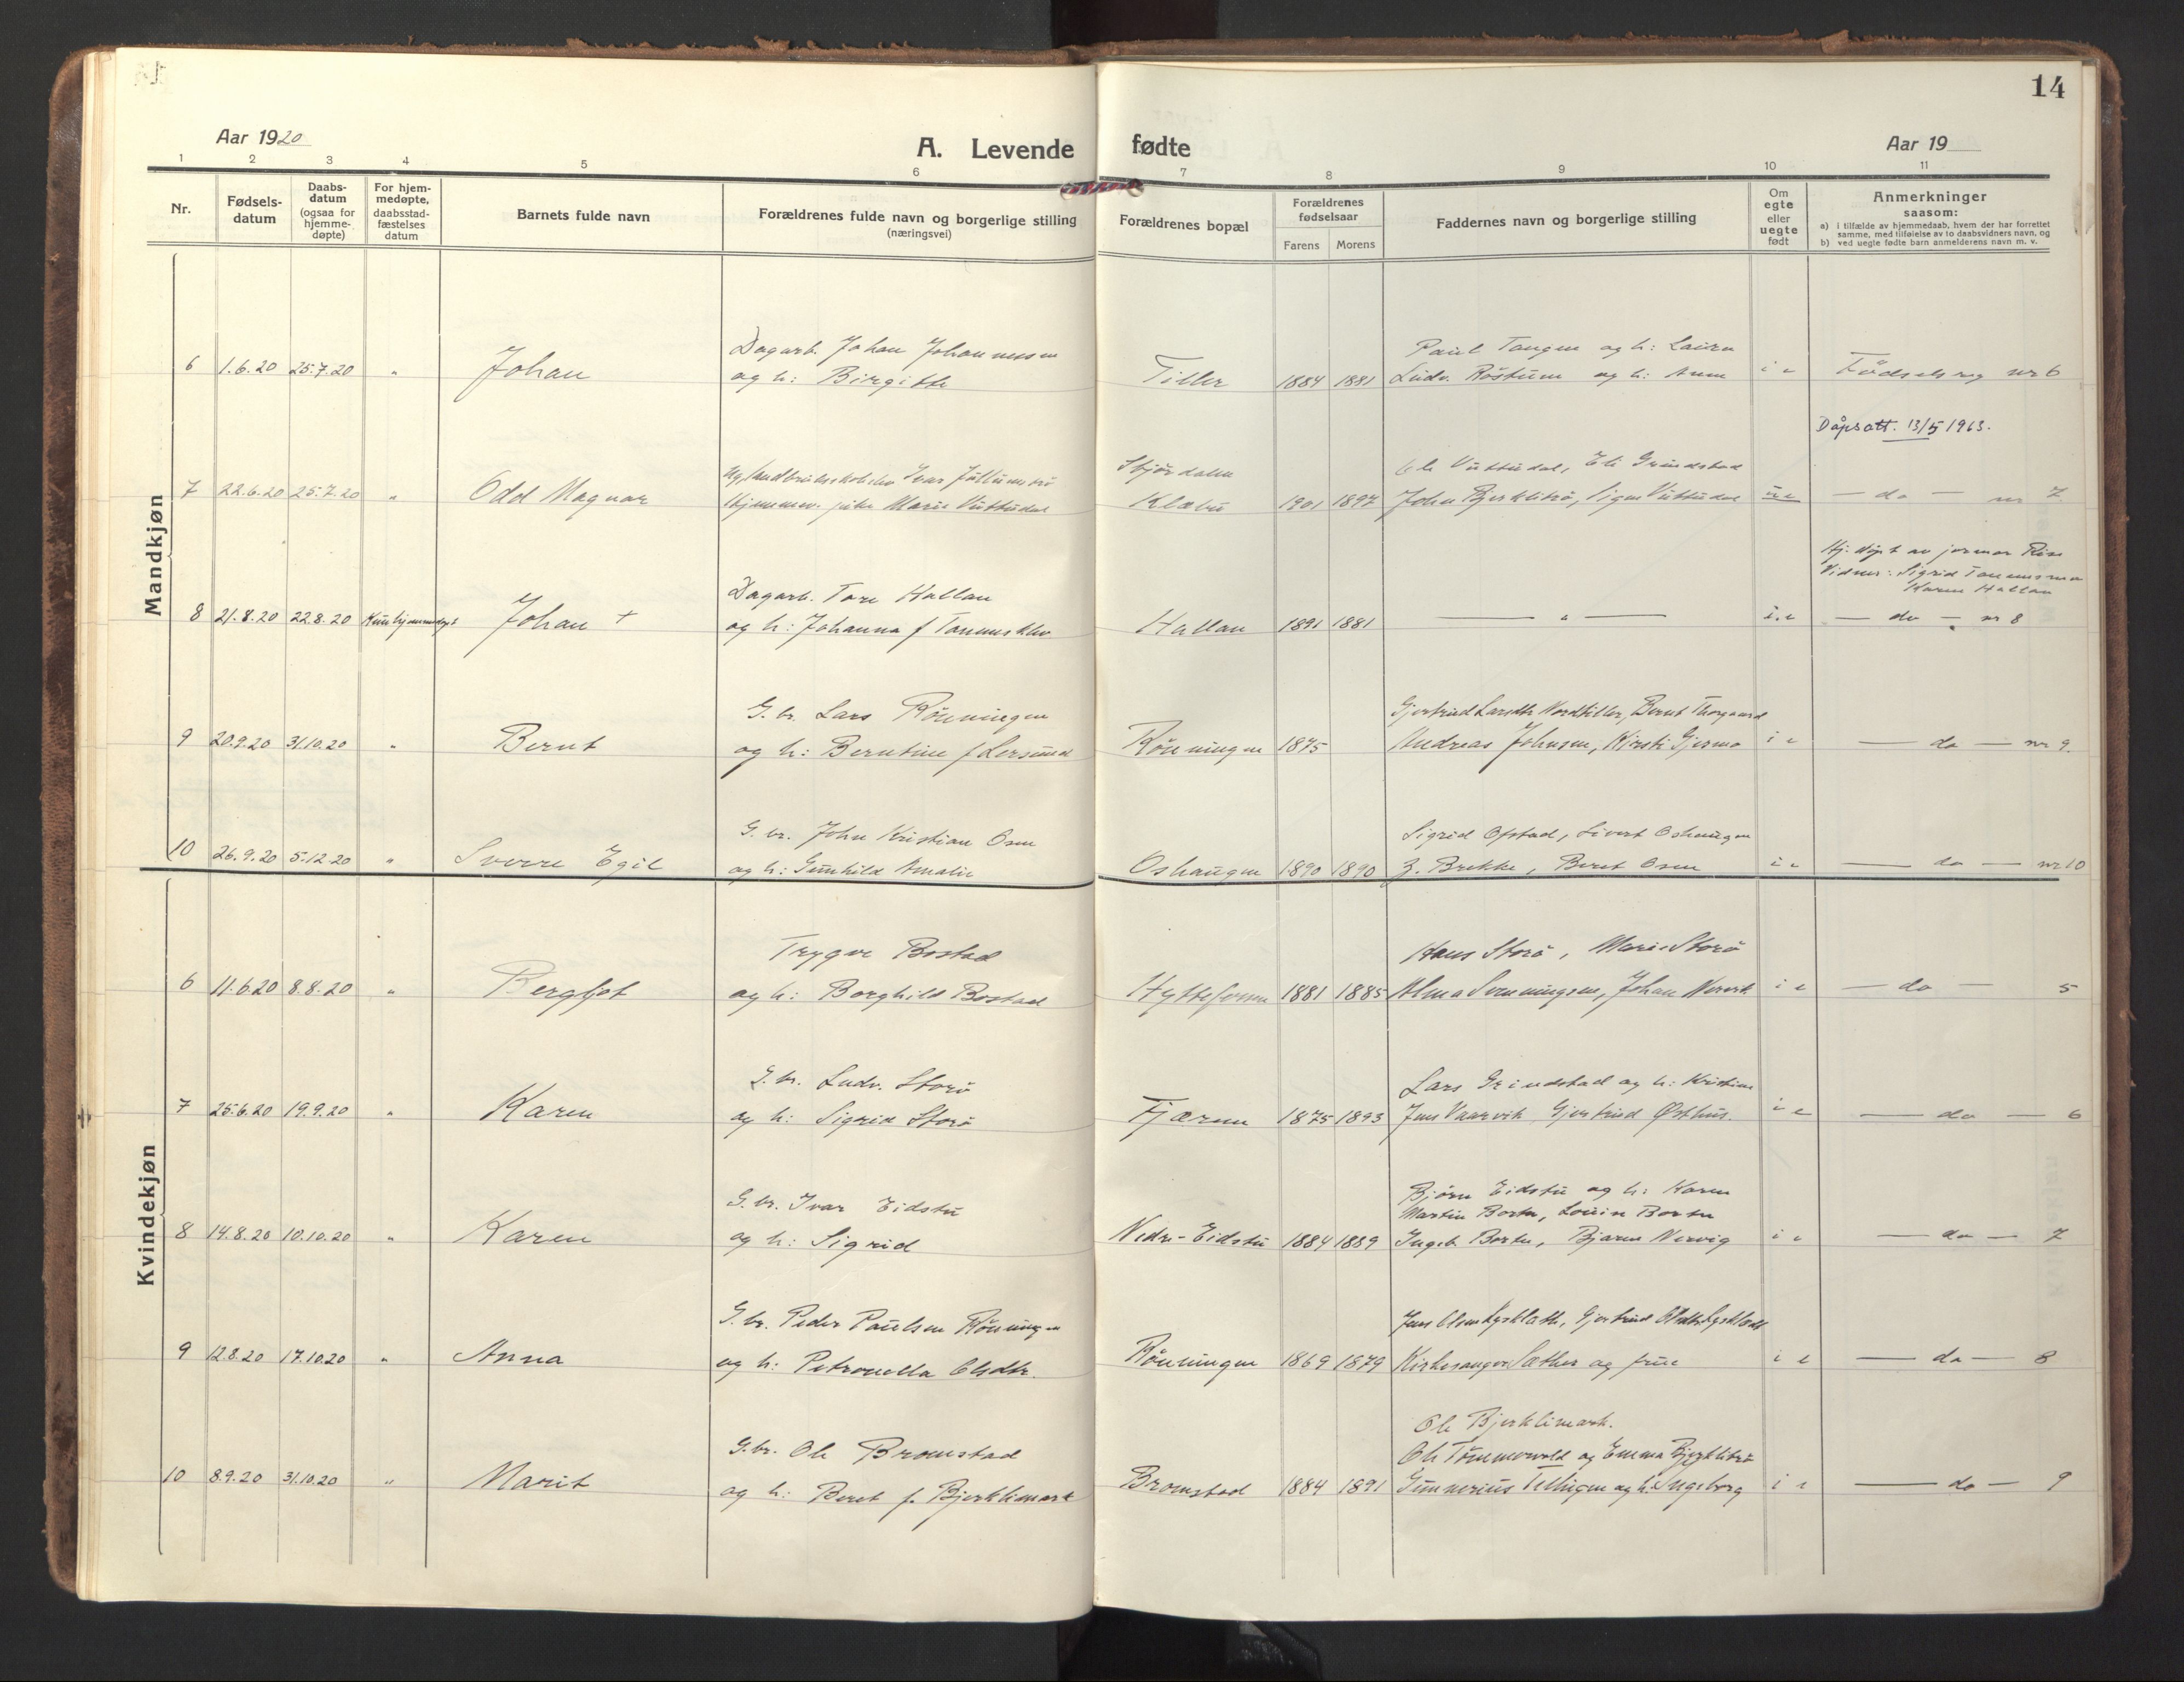 14
Aar 1920
A. Levende fødte
Aar 19
1 2 3 4 5 6 7 8 9 10 11
Nr.
Fødsels-
datum
Daabs-
datum
(ogsaa for
hjemme-
døpte)
For hjem-
medøpte,
daabsstad-
fæstelses
datum
Barnets fulde navn
Forældrenes fulde navn og borgerlige stilling
(næringsvei)
Forældrenes bopæl
Forældrenes
fødselsaar
Farens Morens
Faddernes navn og borgerlige stilling
Om
egte
eller
uegte
født
Anmerkninger
saasom:
a) i tilfælde av hjemmedaab, hvem der har forrettet
samme, med tilføielse av to daabsvidners navn, og
b) ved uegte fødte barn anmelderens navn m. v.
Mandkjøn
Dagarb. Johan Johannesen Paul Tangen og h: Laura
6 1.6.20 25.7.20 " Johan og h: Birgitte Tiller 1884 1881 Ludv. Röstum og h: Anne i e Födselsreg nr 6
Dåpsatt. 13/5 1963.
Ivar Stjørdalen Ole Vuttudal, Eli Grindstad
7 22.6.20 25.7.20 " Odd Magnar pike Marie Vuttudal Klæbu 1901 1897 John Bjerklitrö, Signe Vuttudal u e — do — nr 7
Hj. döpt av jormor Rise
Vidner: Sigrid Tanemsmo
Karen Hallan
Dagarb. Tore Hallan
8 21.8.20 22.8.20 Kun hjemmedøpt Johan + og h: Johanna f Tanemsklev Hallan 1891 1881 — " — i.e — do — nr 8
G. br. Lars Rönningen Gjertrud Larsdtr Nordtiller, Bernt Thorgaard
9 20.9.20 31.10.20 " Bernt og h: Berntine f Lersund Rönningen 1875 Andreas Johnsen, Kirsti Gjermo i e — do — nr 9.
G. br. John Kristian Osen Sigrid Ofstad, Sivert Oshaugen
10 26.9.20 5.12.20 " Sverre Egil og h: Gunhild Amalie Oshaugen 1890 1890 Z. Brekke, Beret Osen i e — do — nr 10
Kvindekjøn
Trygve Bostad Hans Storö, Marie Storö
6 11.6.20 8.8.20 " Bergljot og h: Borghild Bostad Hyttefossen 1881 1885 Alma Svenningsen, Johan Nervik i e — do — 5
G. br. Ludv. Storö Lars Grindstad og h: Kristine
7 25.6.20 19.9.20 " Karen og h: Sigrid Storö Fjæren 1875 1893 Jens Vaarvik, Gjertrud Østhus. i e — do — 6
G. br. Ivar Eidstu Bjørn Eidstu og h: Karen
Martin Borten, Louise Borten
8 14.8.20 10.10.20 " Karen og h: Sigrid Nedre-Eidstu 1884 1889 Ingeb. Borten, Bjarne Nervig i e — do — 7
G. br. Peder Paulsen Rönningen Jens Olsen Lysklætt, Gjertrud Olsdtr Lysklætt
9 12.8.20 17.10.20 " Anna og h: Petronella Olsdtr. Rönningen 1869 1879 Kirkesanger Sæther og frue i e — do — 8
Ole Bjerklimark.
G. br. Ole Bromstad Ole Tömmervold og Emma Bjerklitrö
10 8.9.20 31.10.20 " Marit og h: Beret f. Bjerklimark Bromstad 1884 1891 Gunnerius Tellugen og h: Ingeborg i e — do — 9